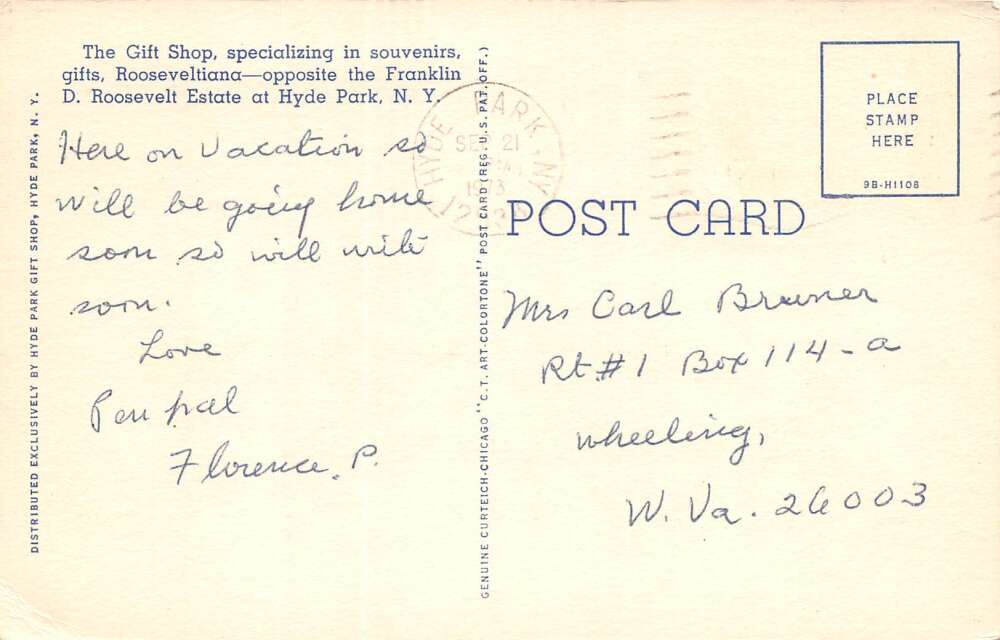 The Gift Shop, specializing in souvenirs,
gifts, Rooseveltiana—opposite the Franklin
D. Roosevelt Estate at Hyde Park, N. Y.
Here on Vacation so
will be going home
soon so will write
soon.
Love
Pen pal
Florence. P.
DISTRIBUTED EXCLUSIVELY BY HYDE PARK GIFT SHOP, HYDE PARK, N. Y.
GENUINE CURTEICH-CHICAGO "C.T. ART-COLORTONE" POST CARD (REG. U.S. PAT. OFF.)
HYDE PARK, NY
SEP 21
1973
PLACE
STAMP
HERE
9B-H1108
POST CARD
Mrs Carl Bruner
Rt #1 Box 114-a
Wheeling,
W. Va. 26003